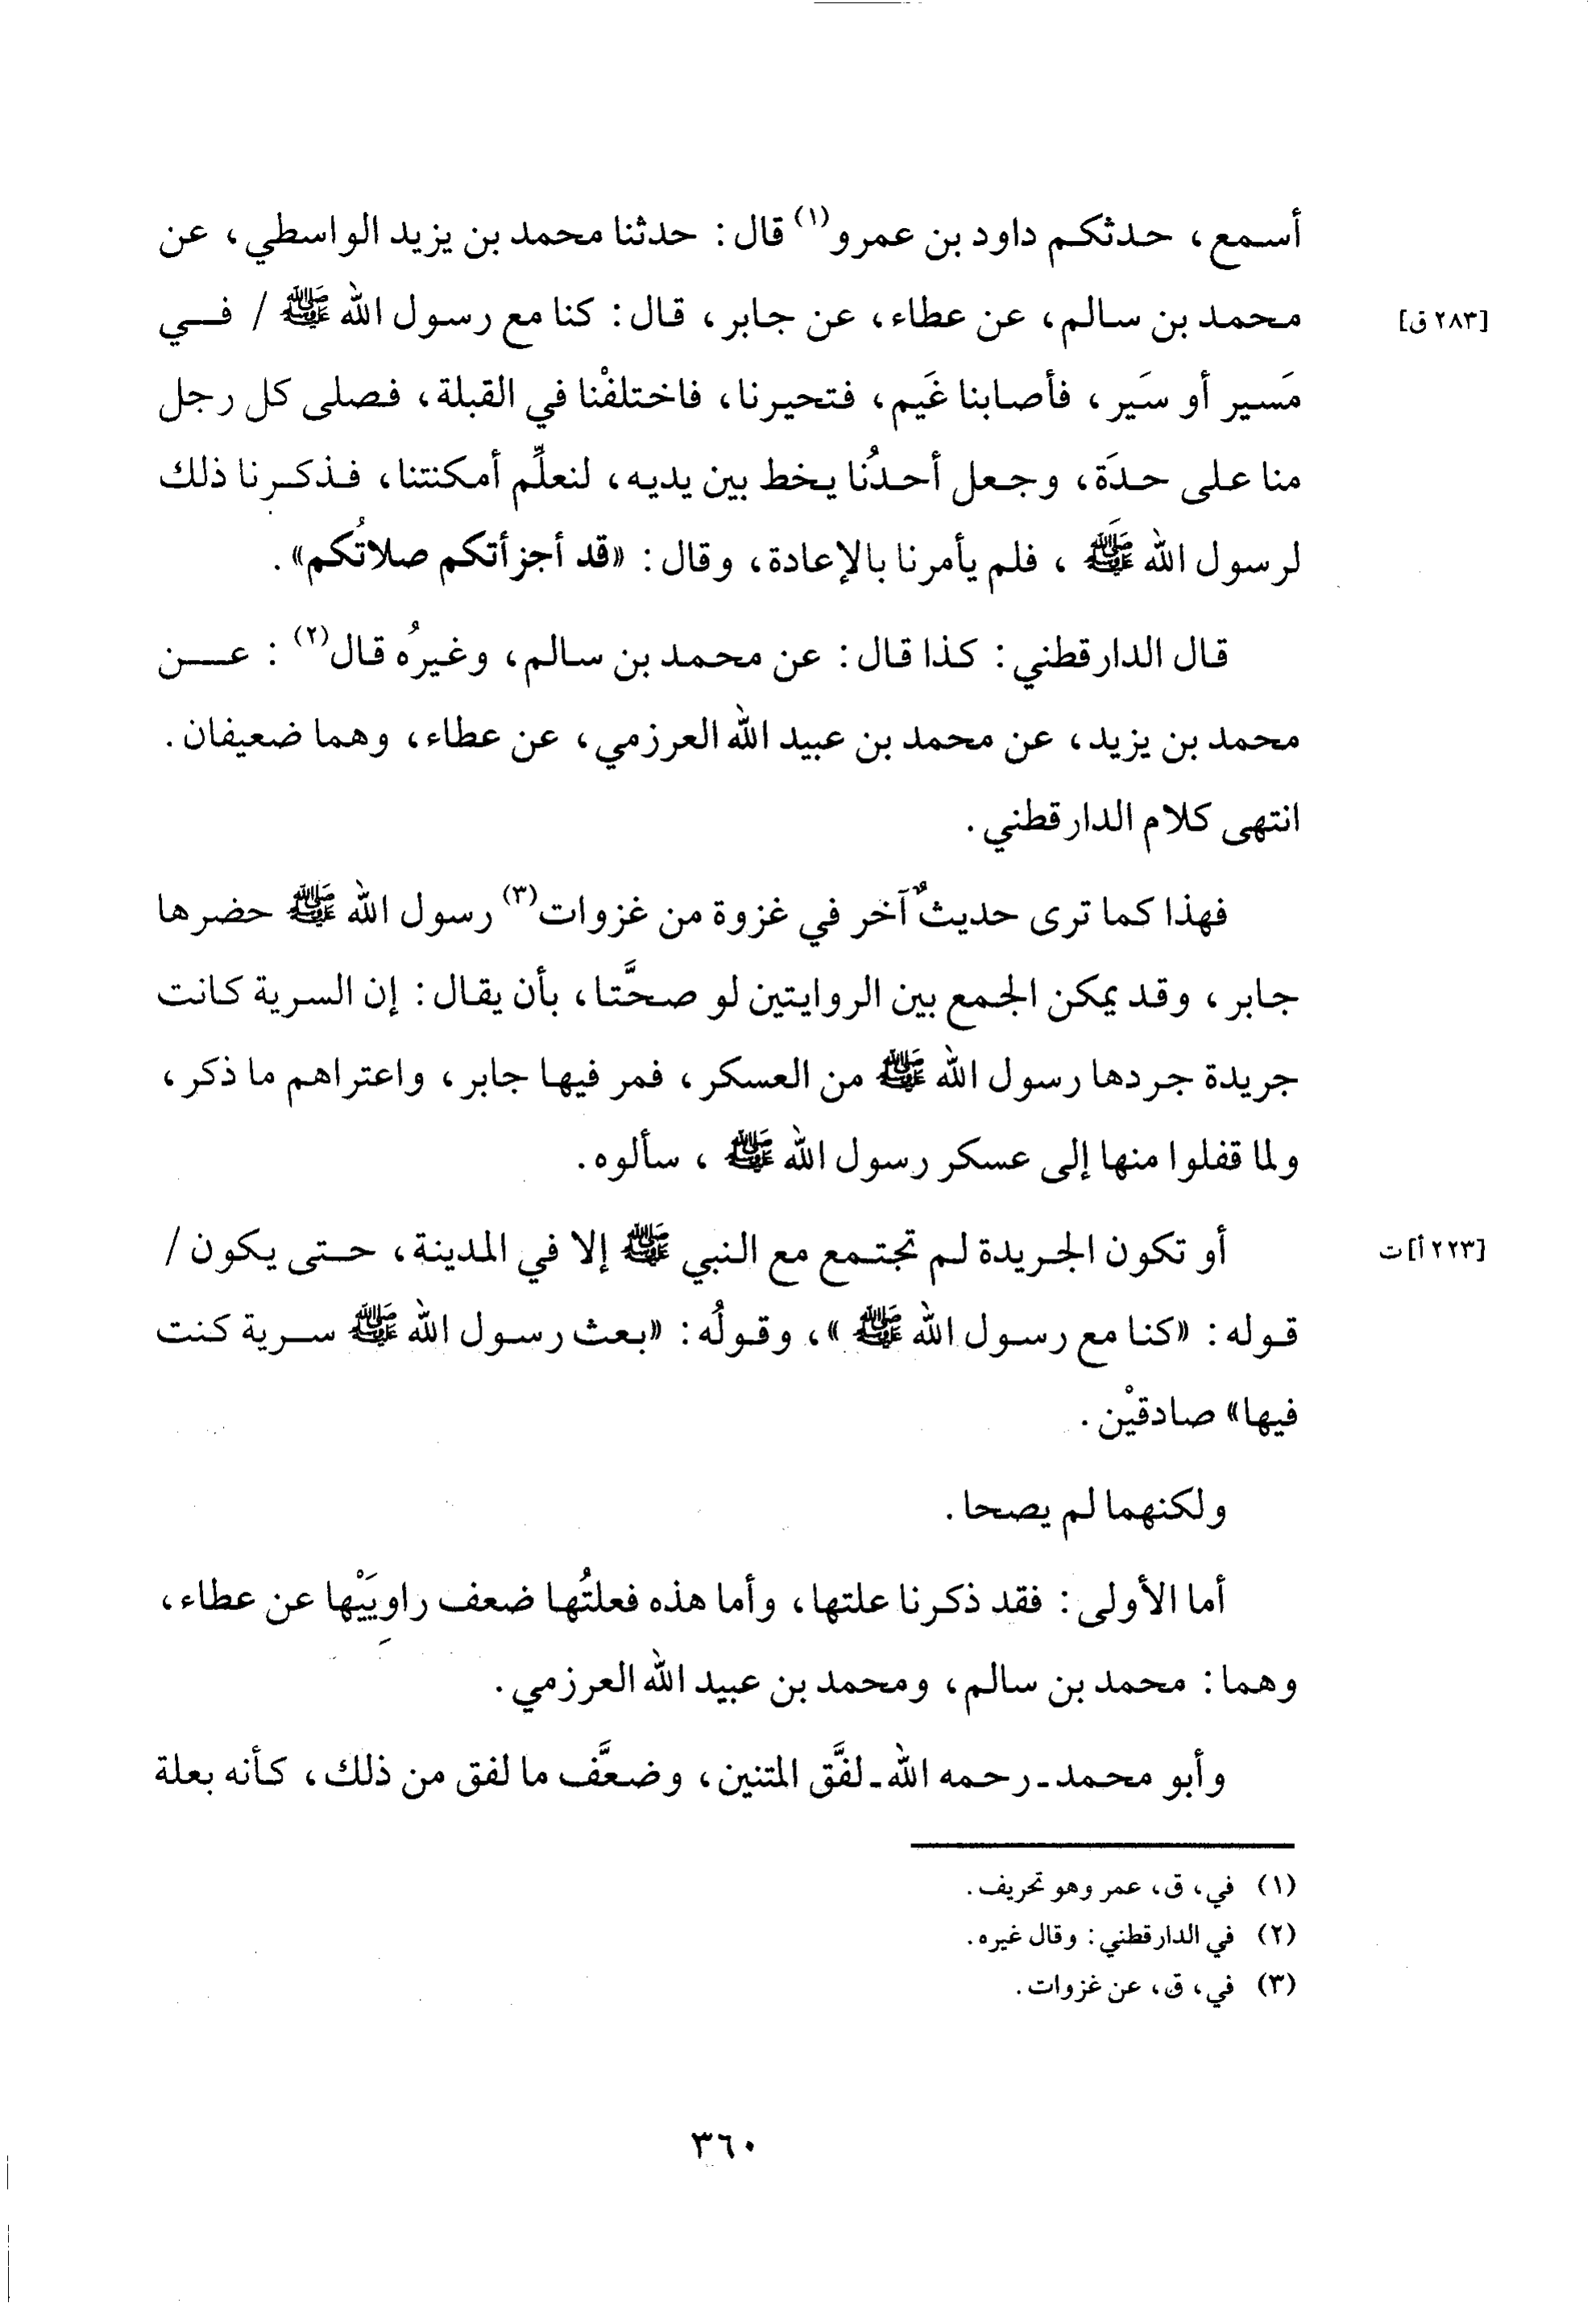 أسمع، حدثكم داود بن عمرو(١) قال: حدثنا محمد بن يزيد الواسطي، عن
محمد بن سالم، عن عطاء، عن جابر، قال: كنا مع رسول الله ﷺ / فـــي
[٢٨٣ ق]
مَسير أو سَير، فأصابنا غَيم، فتحيرنا، فاختلفْنا في القبلة، فصلى كل رجل
منا على حدَة، وجعل أحدُنا يخط بين يديه، لنعلِّم أمكنتنا، فذكرنا ذلك
لرسول الله ﷺ، فلم يأمرنا بالإعادة، وقال: «قد أجزأتكم صلاتُكم».
قال الدارقطني: كذا قال: عن محمد بن سالم، وغيرُه قال(٢): عـــن
محمد بن يزيد، عن محمد بن عبيد الله العرزمي، عن عطاء، وهما ضعيفان.
انتهى كلام الدارقطني.
فهذا كما ترى حديثٌ آخر في غزوة من غزوات(٣) رسول الله ﷺ حضرها
جابر، وقد يمكن الجمع بين الروايتين لو صحَّتا، بأن يقال: إن السرية كانت
جريدة جردها رسول الله ﷺ من العسكر، فمر فيها جابر، واعتراهم ما ذكر،
ولما قفلوا منها إلى عسكر رسول الله ﷺ، سألوه.
أو تكون الجريدة لم تجتمع مع النبي ﷺ إلا في المدينة، حتى يكون /
[٢٢٣ أ] ت
قوله: «كنا مع رسول الله ﷺ»، وقولُه: «بعث رسول الله ﷺ سرية كنت
فيها» صادقيْن.
ولكنهما لم يصحا.
أما الأولى: فقد ذكرنا علتها، وأما هذه فعلتُها ضعف راوِيَيْها عن عطاء،
وهما: محمد بن سالم، ومحمد بن عبيد الله العرزمي.
وأبو محمد ـ رحمه الله ـ لفَّق المتنين، وضعَّف ما لفق من ذلك، كأنه بعلة
(١) في، ق، عمر وهو تحريف.
(٢) في الدارقطني: وقال غيره.
(٣) في، ق، عن غزوات.
٣٦٠